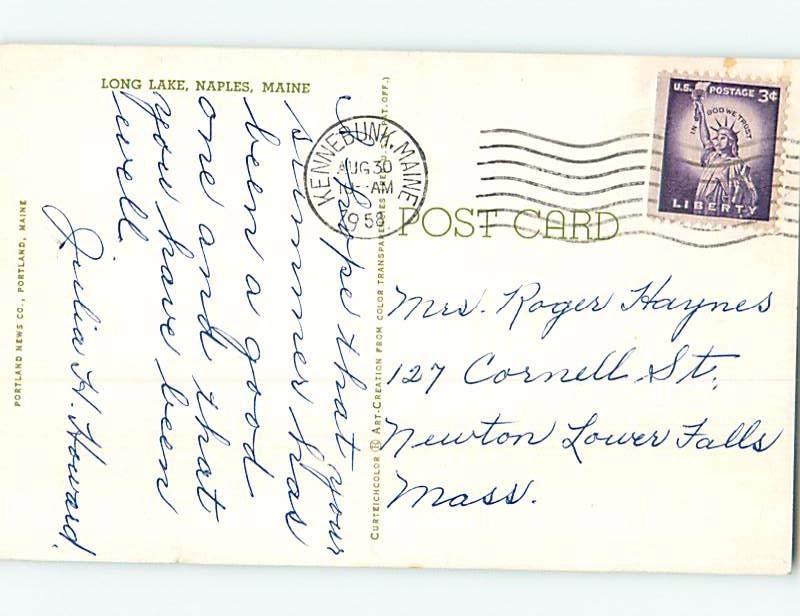 LONG LAKE, NAPLES, MAINE
I hope that your
summer has
been a good
one and that
you have been
well
Julia H. Howard.
PORTLAND NEWS CO., PORTLAND, MAINE
CURTEICHCOLOR ART-CREATION FROM COLOR TRANSPARE PAT. OFF.)
KENNEBUNK, MAINE
AUG 30
AM
1958
U.S. POSTAGE 3¢
IN GOD WE TRUST
LIBERTY
POST CARD
Mrs. Roger Haynes
127 Cornell St.
Newton Lower Falls
Mass.